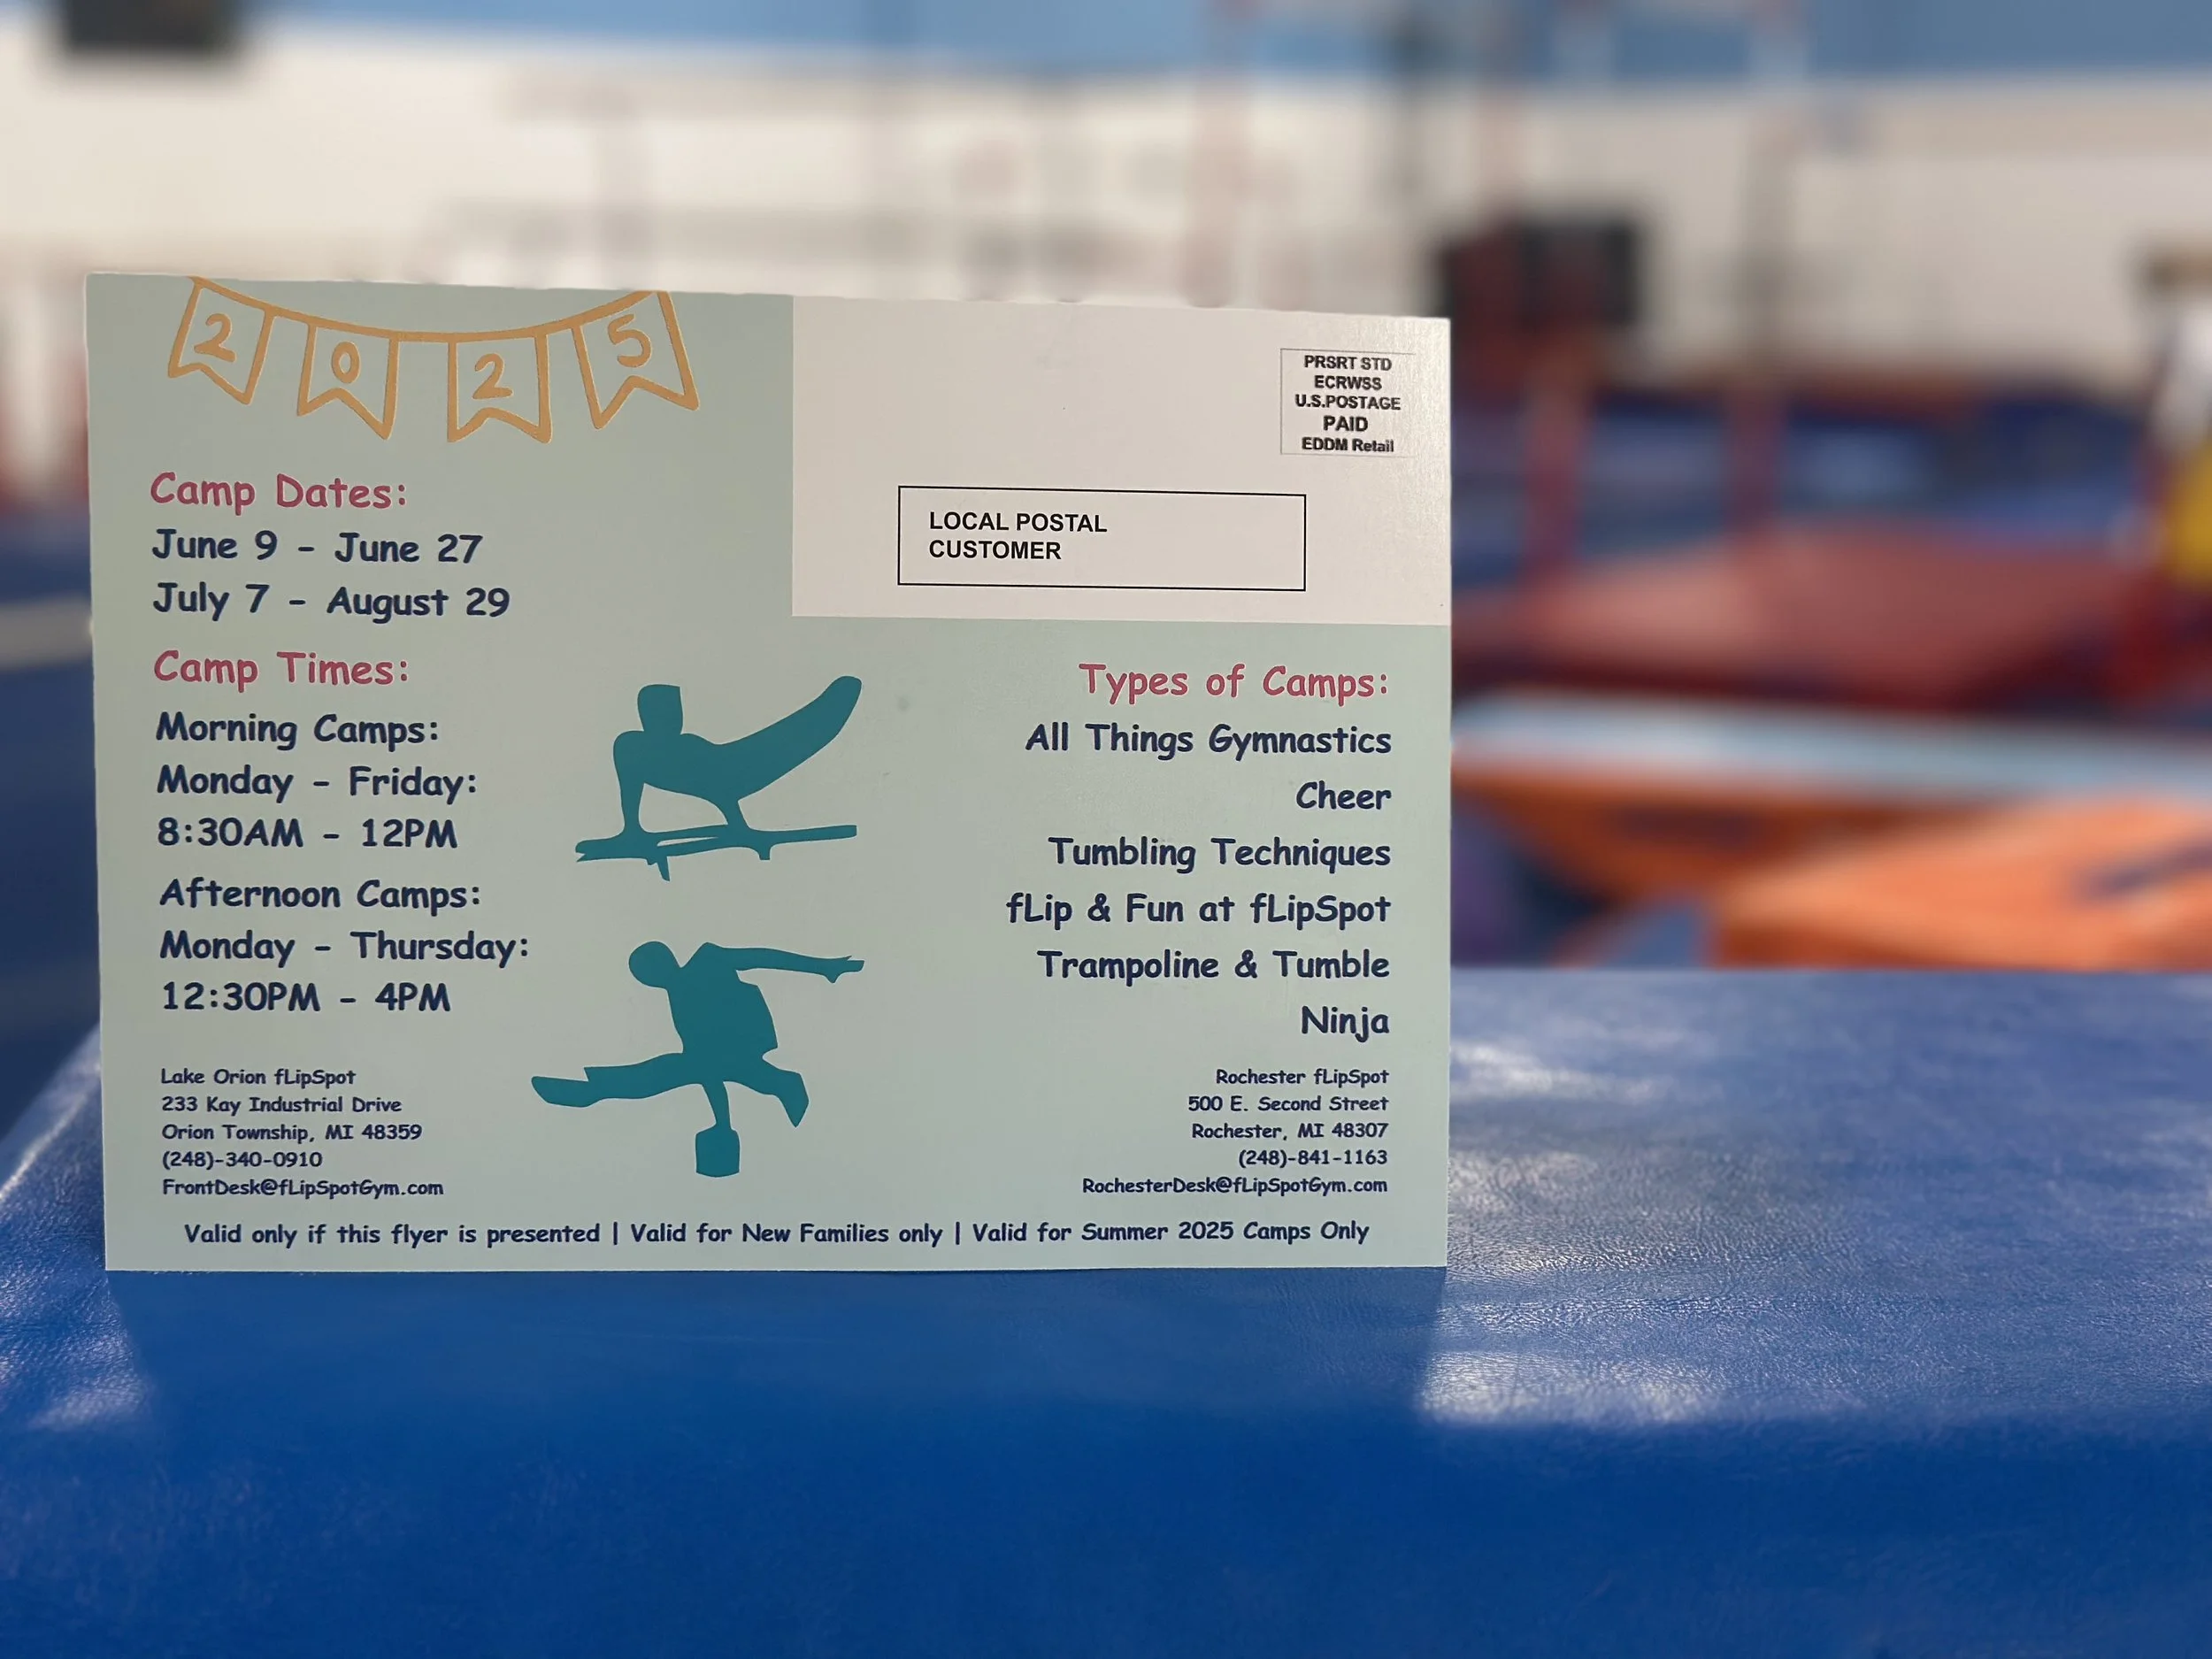 2025
Camp Dates:
June 9 - June 27
July 7 - August 29
Camp Times:
Morning Camps:
Monday - Friday:
8:30AM - 12PM
Afternoon Camps:
Monday - Thursday:
12:30PM - 4PM
Lake Orion fLipSpot
233 Kay Industrial Drive
Orion Township, MI 48359
(248)-340-0910
FrontDesk@fLipSpotGym.com
PRSRT STD
ECRWSS
U.S.POSTAGE
PAID
EDDM Retail
LOCAL POSTAL
CUSTOMER
Types of Camps:
All Things Gymnastics
Cheer
Tumbling Techniques
fLip & Fun at fLipSpot
Trampoline & Tumble
Ninja
Rochester fLipSpot
500 E. Second Street
Rochester, MI 48307
(248)-841-1163
RochesterDesk@fLipSpotGym.com
Valid only if this flyer is presented | Valid for New Families only | Valid for Summer 2025 Camps Only